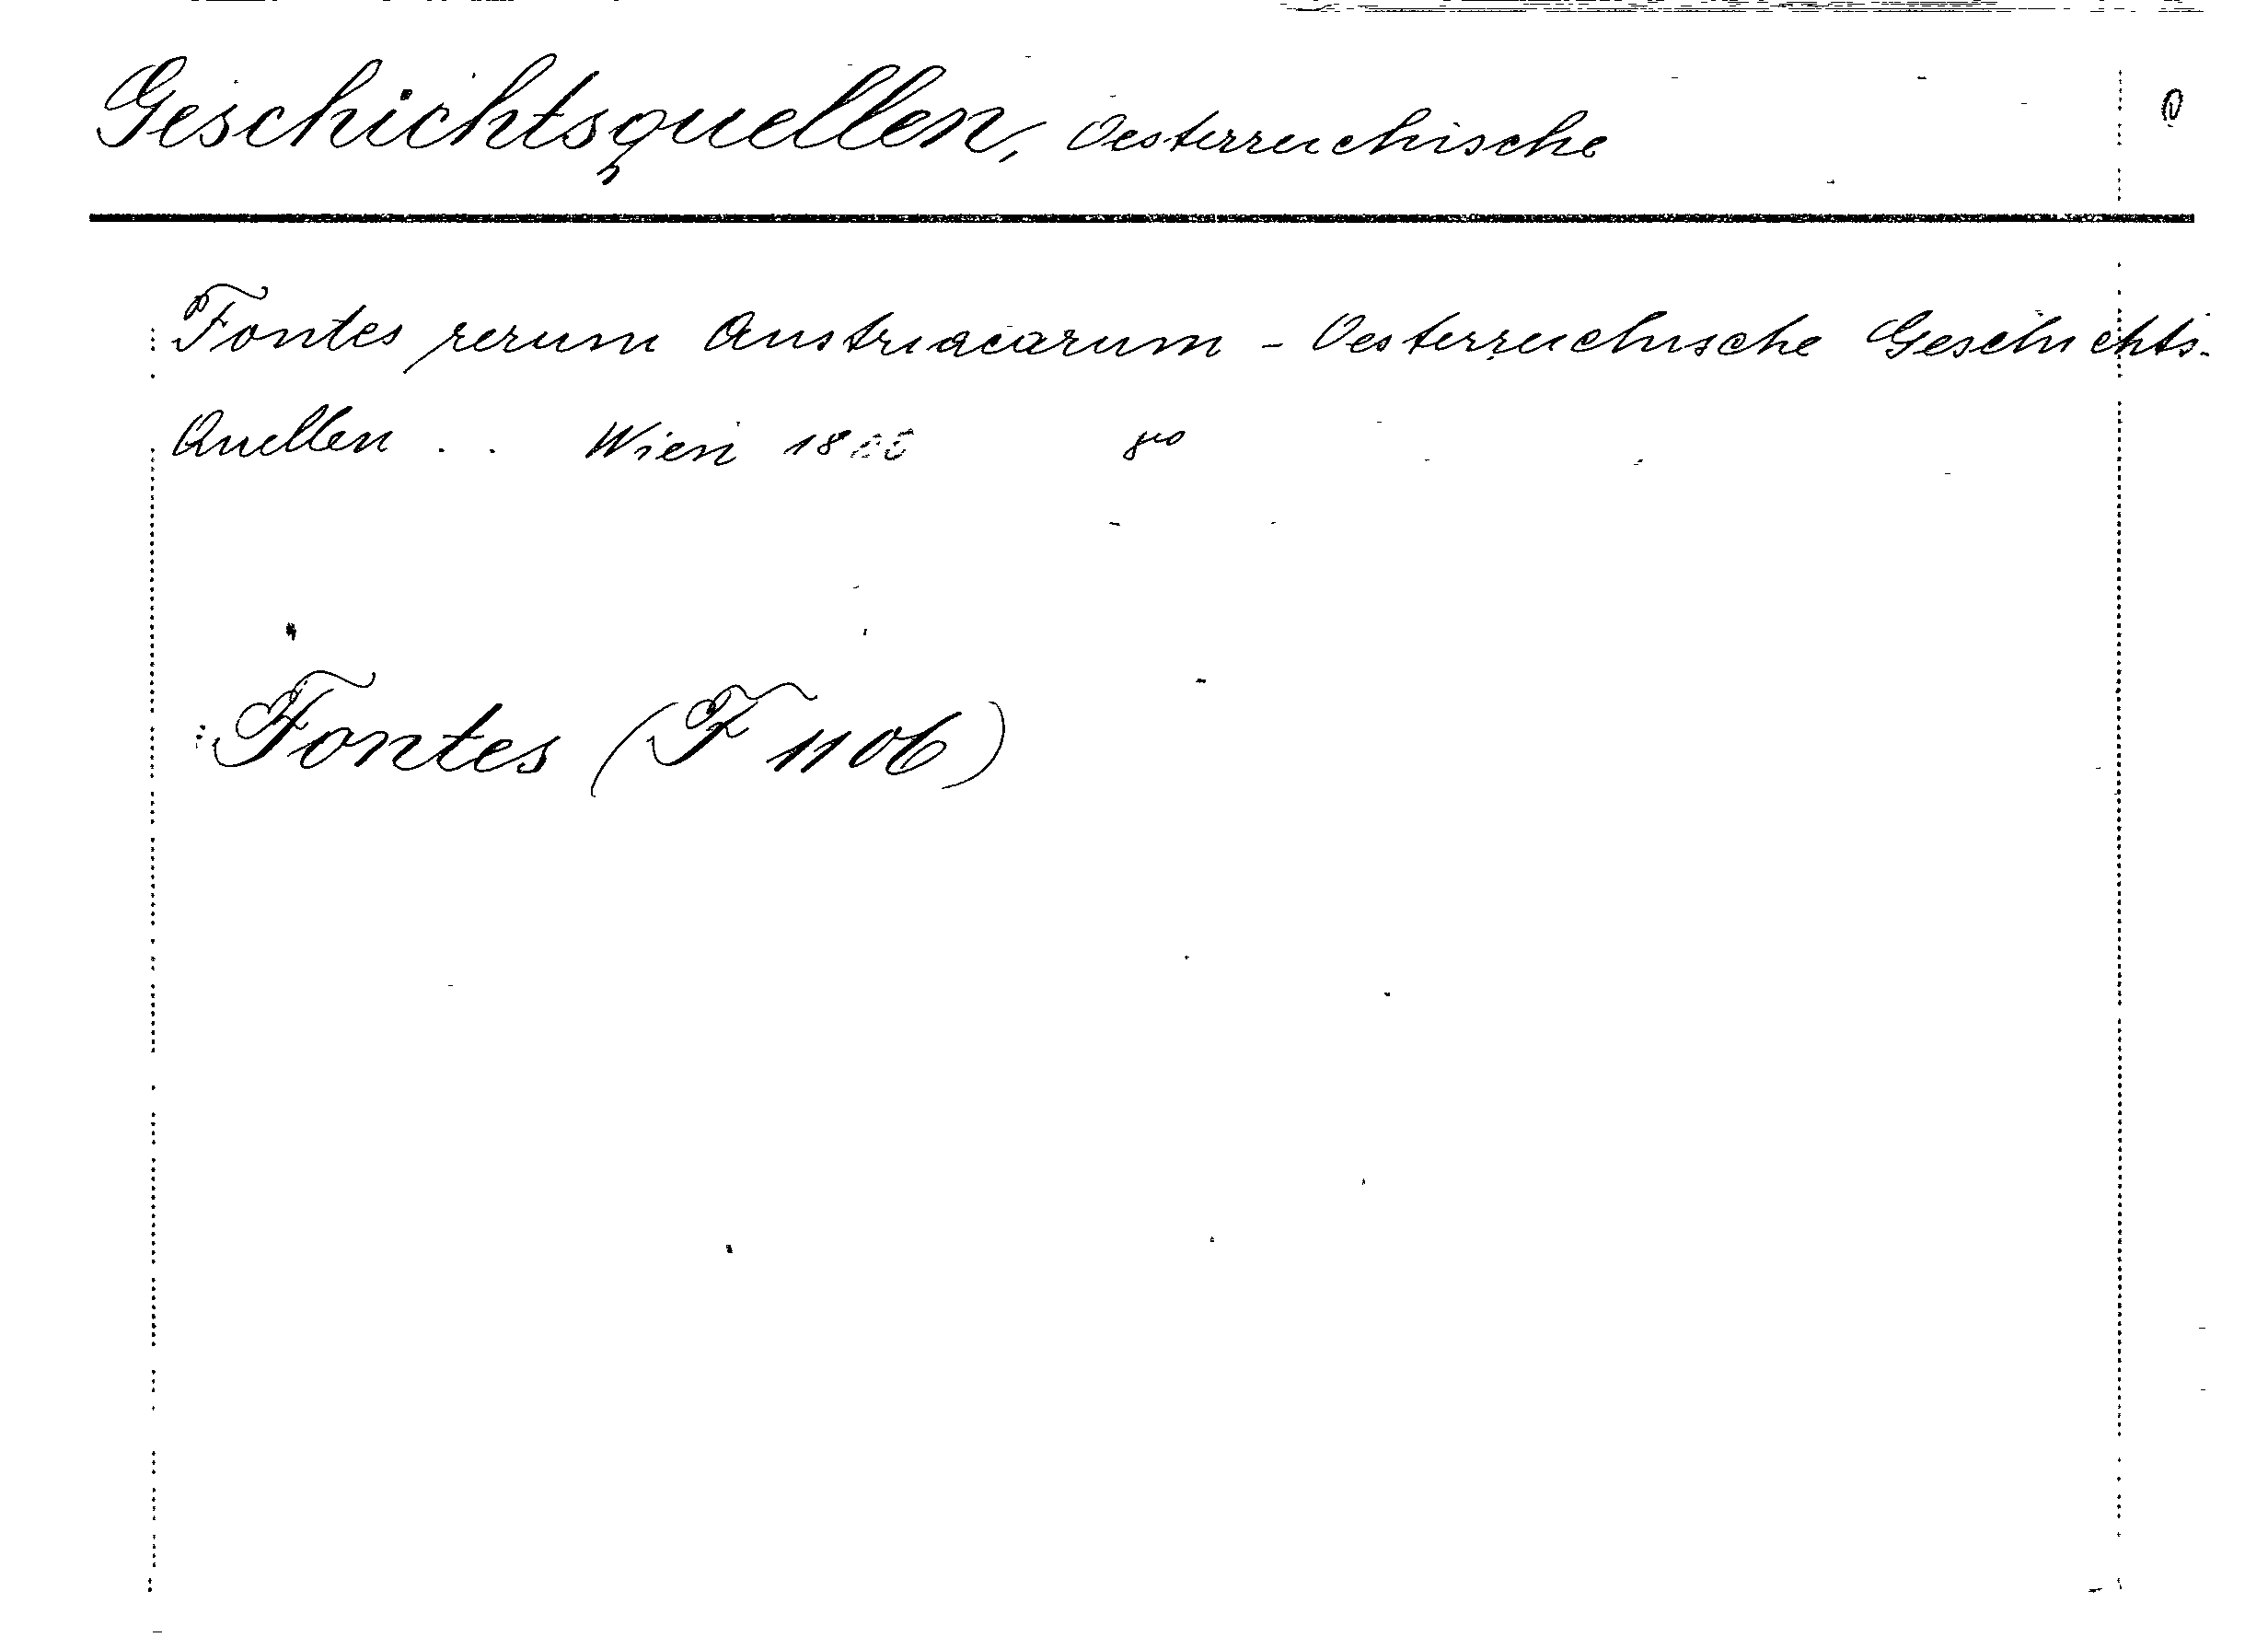 Geschichtsquellen, Oesterreichische
Fontes rerum Austriacarum - Oesterreichische Geschichts-
Quellen . . Wien 18 8vo
Fontes (F 1106)